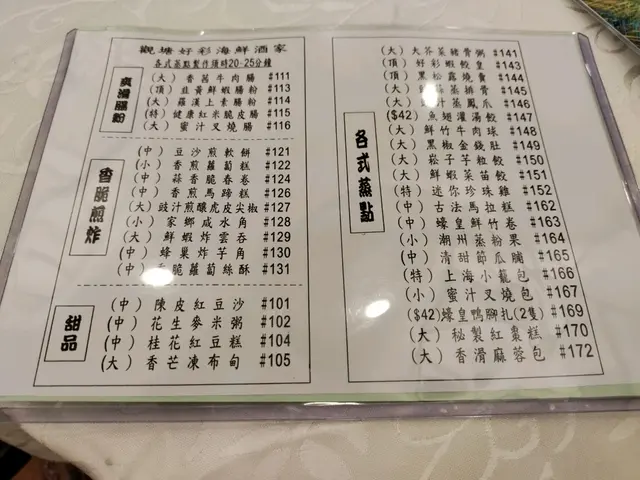 觀塘好彩海鮮酒家
各式蒸點製作須時20-25分鐘
爽滑腸粉
(大) 香茜牛肉腸 #111
(頂) 韭黃鮮蝦腸粉 #113
(大) 羅漢上素腸 #114
(特) 健康紅米脆皮腸 #115
(大) 蜜汁叉燒腸 #116
香脆煎炸
(中) 豆沙煎軟餅 #121
(小) 香煎蘿蔔糕 #122
(中) 蒜香脆春卷 #124
(中) 香煎馬蹄糕 #126
(大) 豉汁煎釀虎皮尖椒 #127
(小) 家鄉咸水角 #128
(大) 鮮蝦炸雲吞 #129
(中) 蜂巢炸芋角 #130
(中) 脆蘿蔔絲酥 #131
甜品
(中) 陳皮紅豆沙 #101
(中) 花生麥米粥 #102
(中) 桂花紅豆糕 #104
(大) 香芒凍布甸 #105
各式蒸點
(大) 大芥菜豬骨粥 #141
(頂) 好彩蝦餃皇 #143
(頂) 黑松露燒賣 #144
(大) 蒸排骨 #145
(大) 汁蒸鳳爪 #146
($42) 魚翅灌湯餃 #147
(大) 鮮竹牛肉球 #148
(大) 黑椒金錢肚 #149
(大) 崧子芋粒餃 #150
(大) 鮮蝦菜苗餃 #151
(特) 迷你珍珠雞 #152
(中) 古法馬拉糕 #162
(中) 蠔皇鮮竹卷 #163
(小) 潮州蒸粉果 #164
(中) 清甜節瓜脯 #165
(特) 上海小籠包 #166
(小) 蜜汁叉燒包 #167
($42) 蠔皇鴨腳扎(2隻) #169
(大) 秘製紅棗糕 #170
(大) 香滑麻蓉包 #172